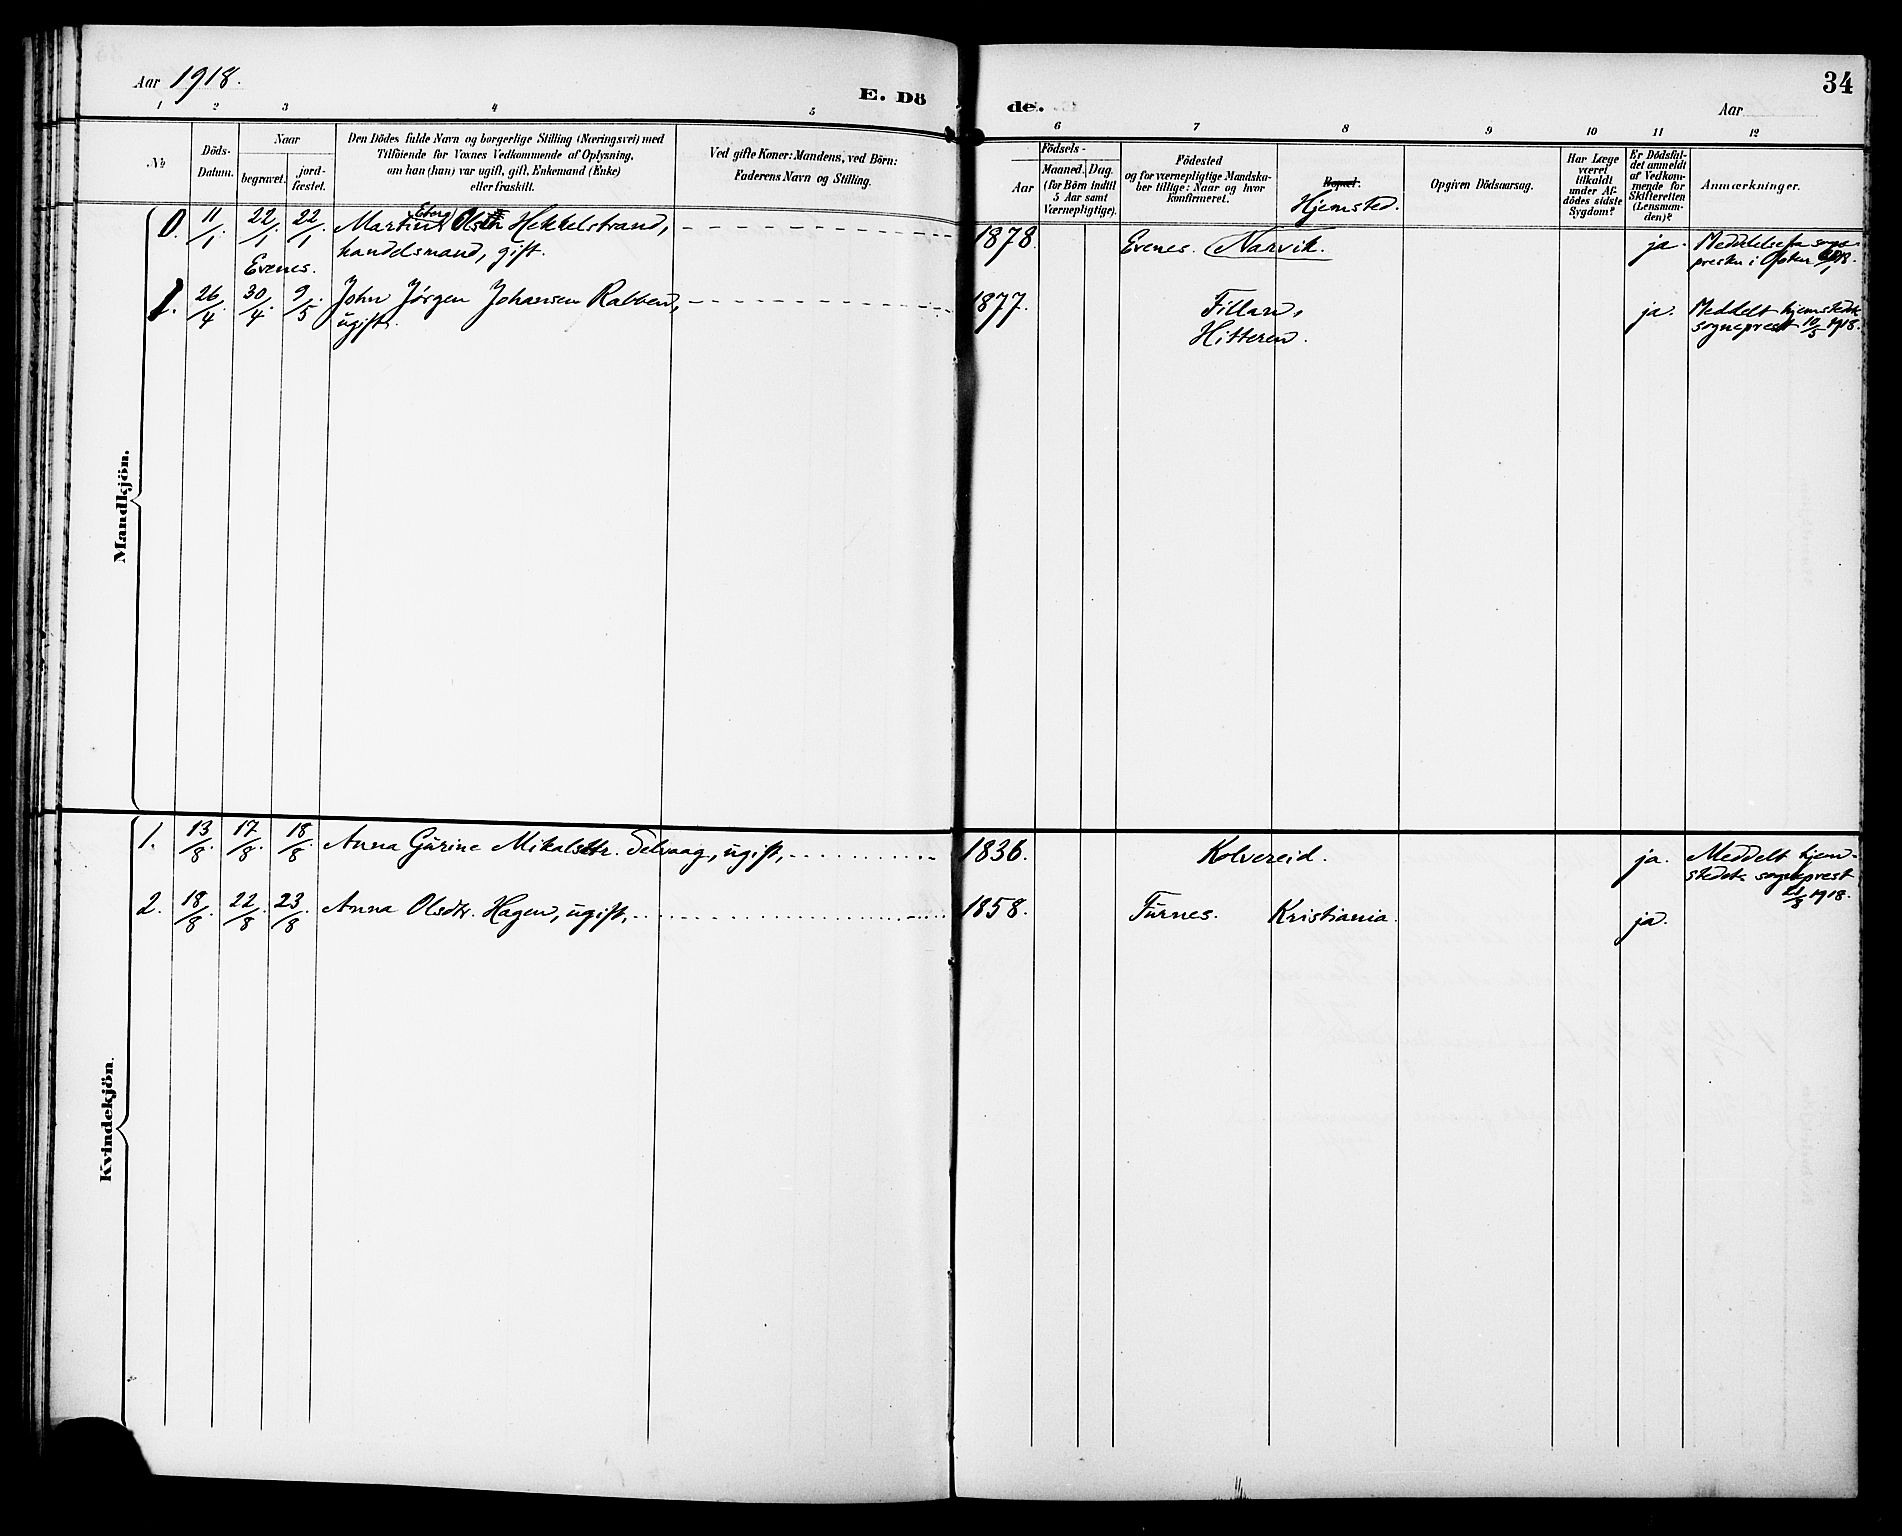 Aar 1918.
E. Dö
de.
Aar
34
1 2 3 4 5
6 7 8 9 10 11 12
No
Döds-
Datum.
Naar
begravet.
jord-
fæstet.
Den Dödes fulde Navn og borgerlige Stilling (Næringsvei) med
Tilföiende for Voxnes Vedkommende af Oplysning,
om han (hun) var ugift, gift, Enkemand (Enke)
eller fraskilt.
Ved gifte Koner: Mandens, ved Börn:
Faderens Navn og Stilling.
Födsels-
Aar
Maaned. Dag.
(for Börn indtil
5 Aar samt
Værnepligtige).
Födested
og for værnepligtige Mandska-
ber tillige: Naar og hvor
konfirmeret.
Bopæl.
Hjemsted.
Opgiven Dödsaarsag.
Har Læge
været
tilkaldt
under Af-
dödes sidste
Sygdom?
Er Dödsfal-
det anmeldt
af Vedkom-
mende for
Skifteretten
(Lensman-
den)?
Anmærkninger.
Mandkjön.
0. 11/1. 22/1. 22/1 Martin Olsen Hekkelstrand, 1878. Evenes. Narvik. ja.
handelsmand, gift.
Evenes.
1. 26/4. 30/4. 9/5. John Jørgen Johansen Rabben, 1877. Fillan, ja. Meddelt hjemstedets
ugift. Hitteren. sogneprest 10/5 1918.
Kvindekjön.
1. 13/8. 17/8. 18/8. Anna Gurine Mikalsdtr. Selvaag, ugift, 1836. Kolvereid. ja. Meddelt hjem-
stedets sogneprest
21/8 1918.
2. 18/8. 22/8. 23/8. Anna Olsdtr. Hagen, ugift, 1858. Furnes. Kristiania. ja.